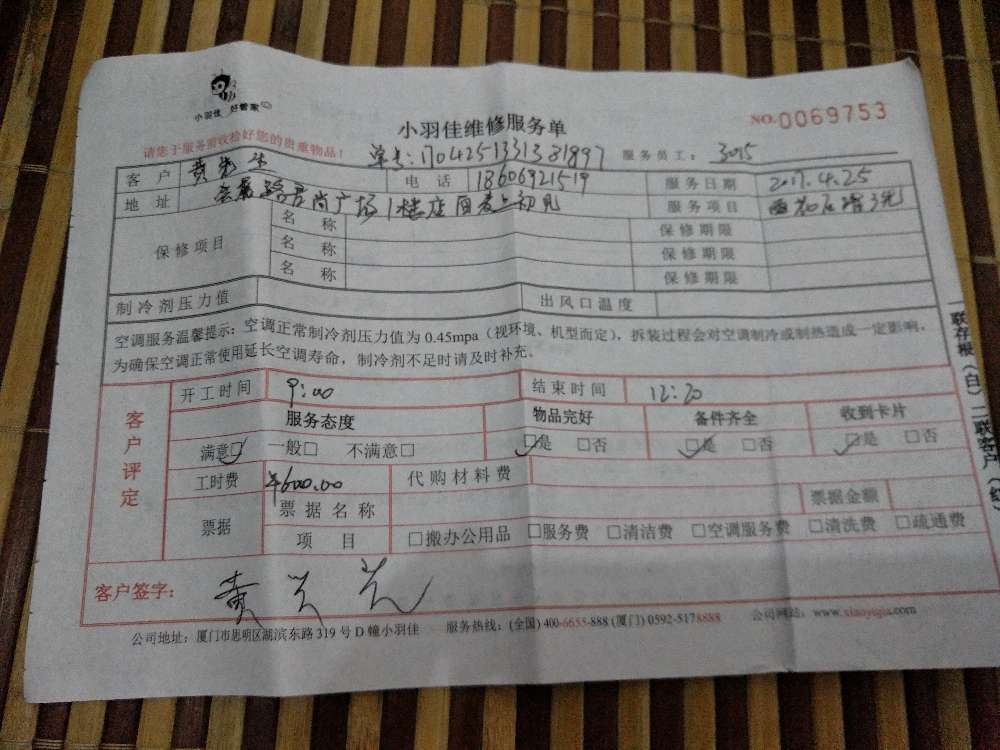 小羽佳 好管家
小羽佳维修服务单
NO.0069753
请您于服务前收拾好您的贵重物品!
单号:170425133131897
服务员工: 3015
客户 黄先生 电话 18606921519 服务日期 2017.4.25
地址 会展路君尚广场1楼店面麦上初见 服务项目
保修项目 名称 保修期限
名称 保修期限
名称 保修期限
制冷剂压力值 出风口温度
空调服务温馨提示:空调正常制冷剂压力值为 0.45mpa(视环境、机型而定),拆装过程会对空调制冷或制热造成一定影响,
为确保空调正常使用延长空调寿命,制冷剂不足时请及时补充。
客户评定
开工时间 9:00 结束时间 12:20
服务态度 物品完好 备件齐全 收到卡片
满意☑ 一般□ 不满意□ ☑是 □否 ☑是 □否 ☑是 □否
工时费 ¥600.00 代购材料费
票据 票据名称 票据金额
项目 □搬办公用品 □服务费 □清洁费 □空调服务费 □清洗费 □疏通费
客户签字: 黄
公司地址:厦门市思明区湖滨东路 319 号 D 幢小羽佳 服务热线:(全国) 400-6655-888 (厦门) 0592-5178888 公司网站:www.xiaoyujia.com
一联存根(白)二联客户(红